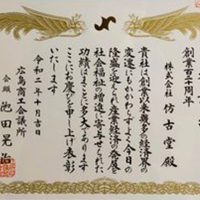 創業百十周年
株式会社 仿古堂 殿
貴社は創業以来幾多の経済界の
変遷にもかかわらずよく今日の
隆盛を迎えられ産業経済の発展
社会福祉の増進に寄与せられた
功績はまことに多大であります
ここにお慶びを申し上げ表彰
いたします
令和二年十月吉日
広島商工会議所
会頭 池田晃治